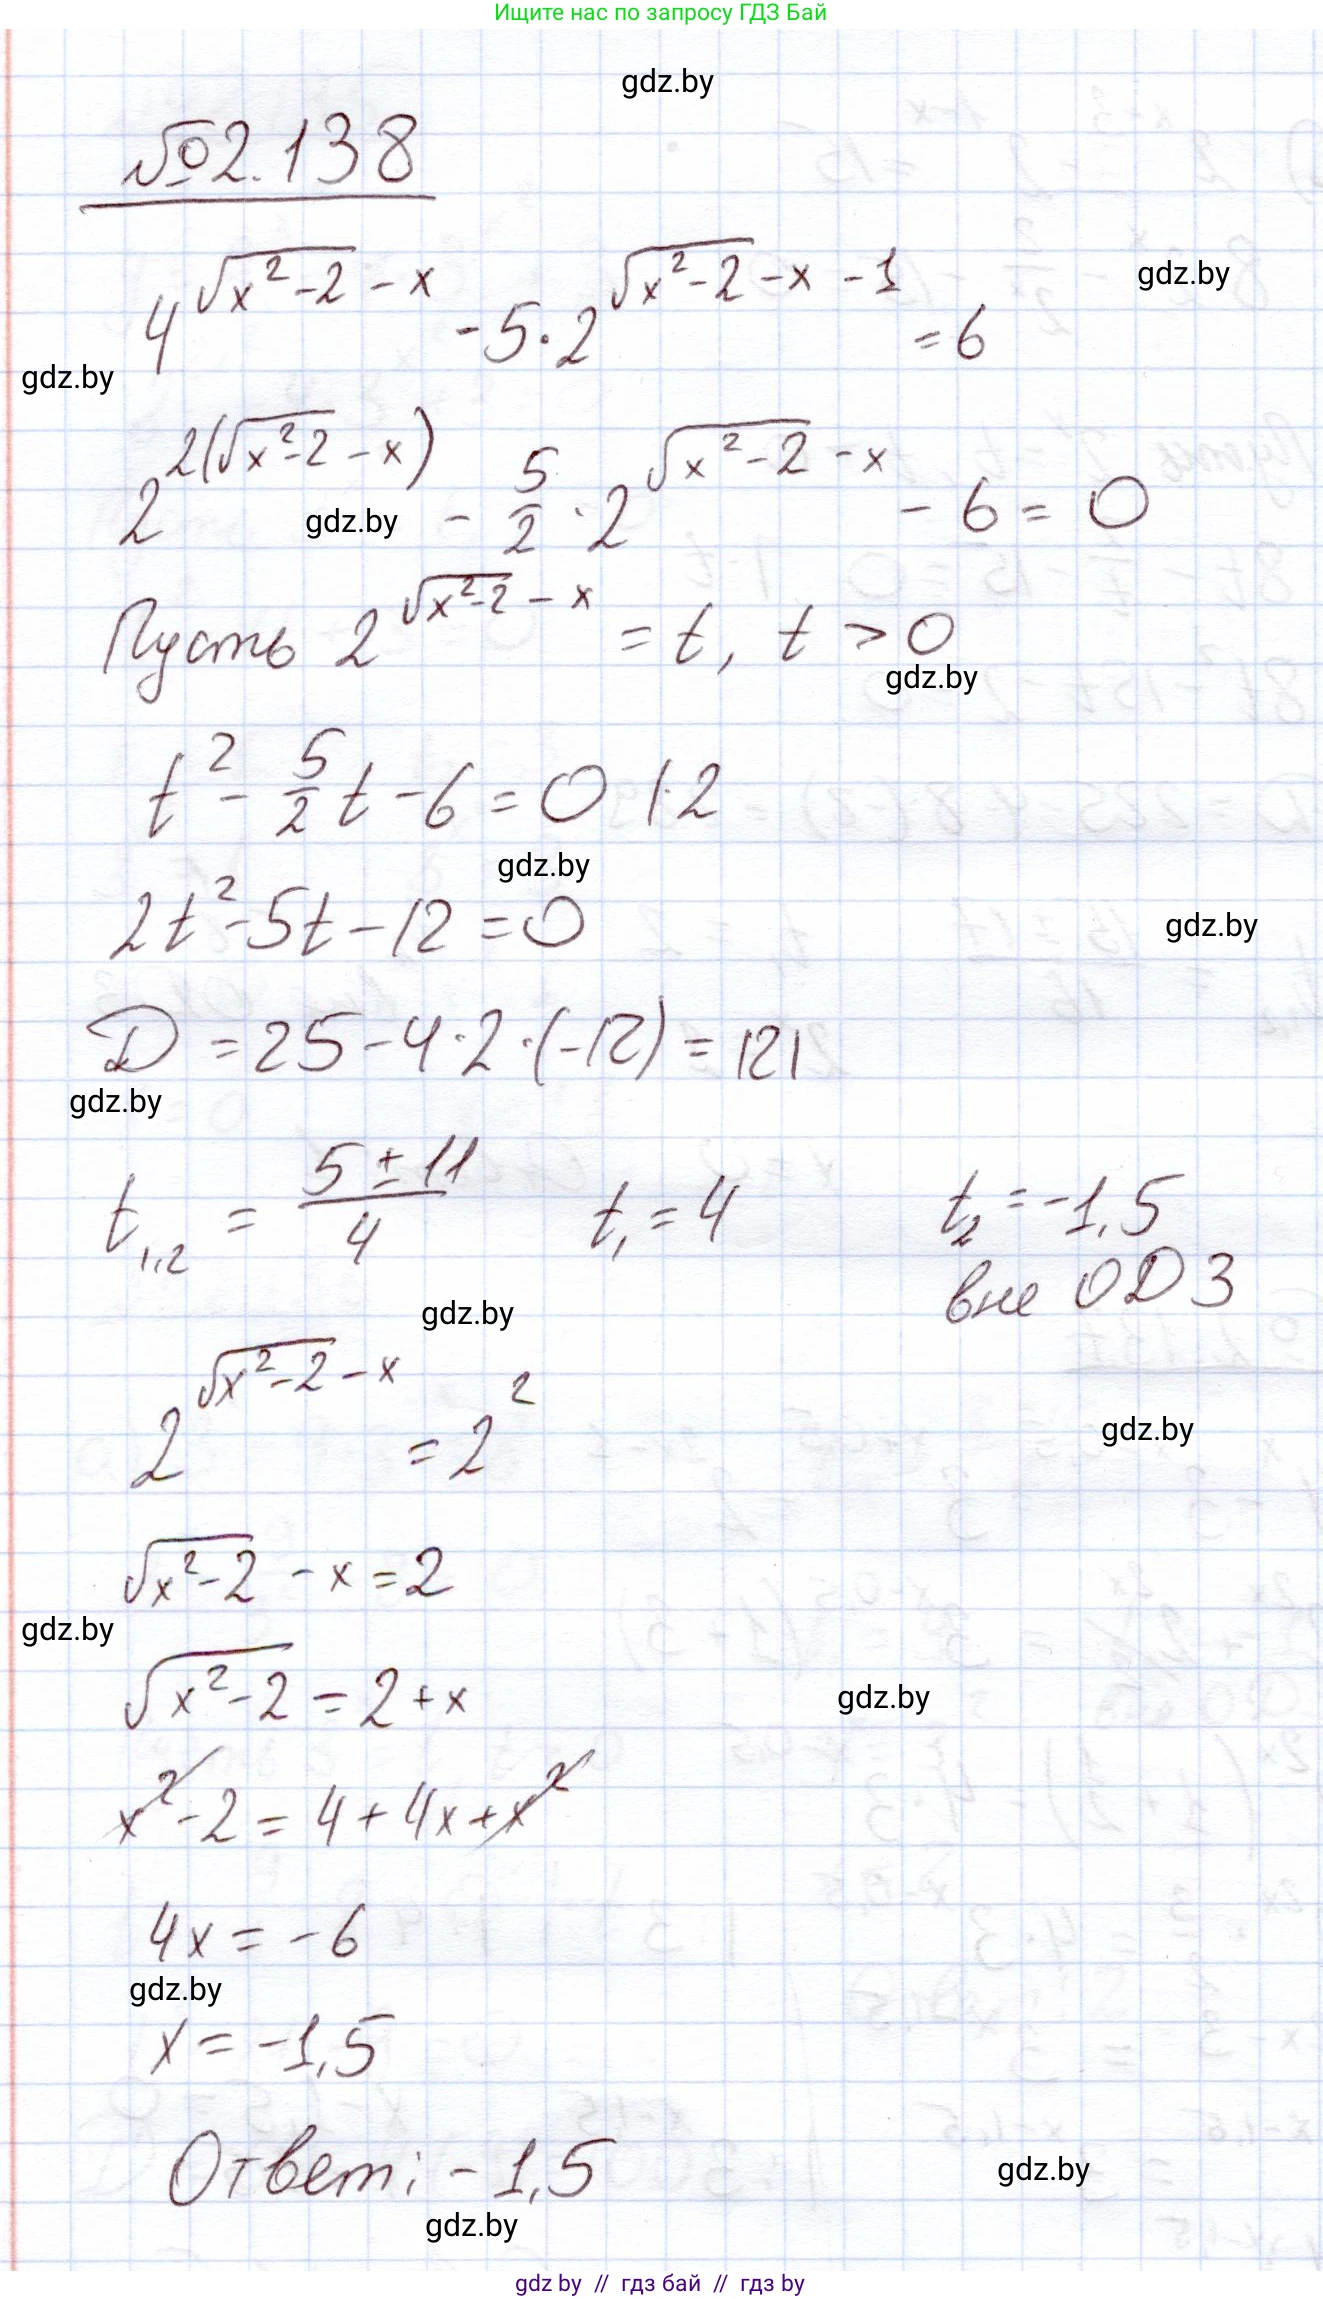 Ищите нас по запросу ГДЗ Бай
gdz.by
№2.138
4^(√(x²-2) - x) - 5·2^(√(x²-2) - x - 1) = 6
gdz.by
gdz.by
2^(2(√(x²-2) - x)) - 5/2 · 2^(√(x²-2) - x) - 6 = 0
gdz.by
Пусть 2^(√(x²-2) - x) = t, t > 0
gdz.by
t² - 5/2 t - 6 = 0 |·2
gdz.by
2t² - 5t - 12 = 0
gdz.by
D = 25 - 4·2·(-12) = 121
gdz.by
t₁,₂ = (5 ± 11)/4 t₁ = 4 t₂ = -1,5
вне ОДЗ
gdz.by
2^(√(x²-2) - x) = 2²
gdz.by
√(x²-2) - x = 2
gdz.by
√(x²-2) = 2 + x
gdz.by
x² - 2 = 4 + 4x + x²
4x = -6
gdz.by
x = -1,5
Ответ: -1,5
gdz.by
gdz.by
gdz by // гдз бай // гдз by